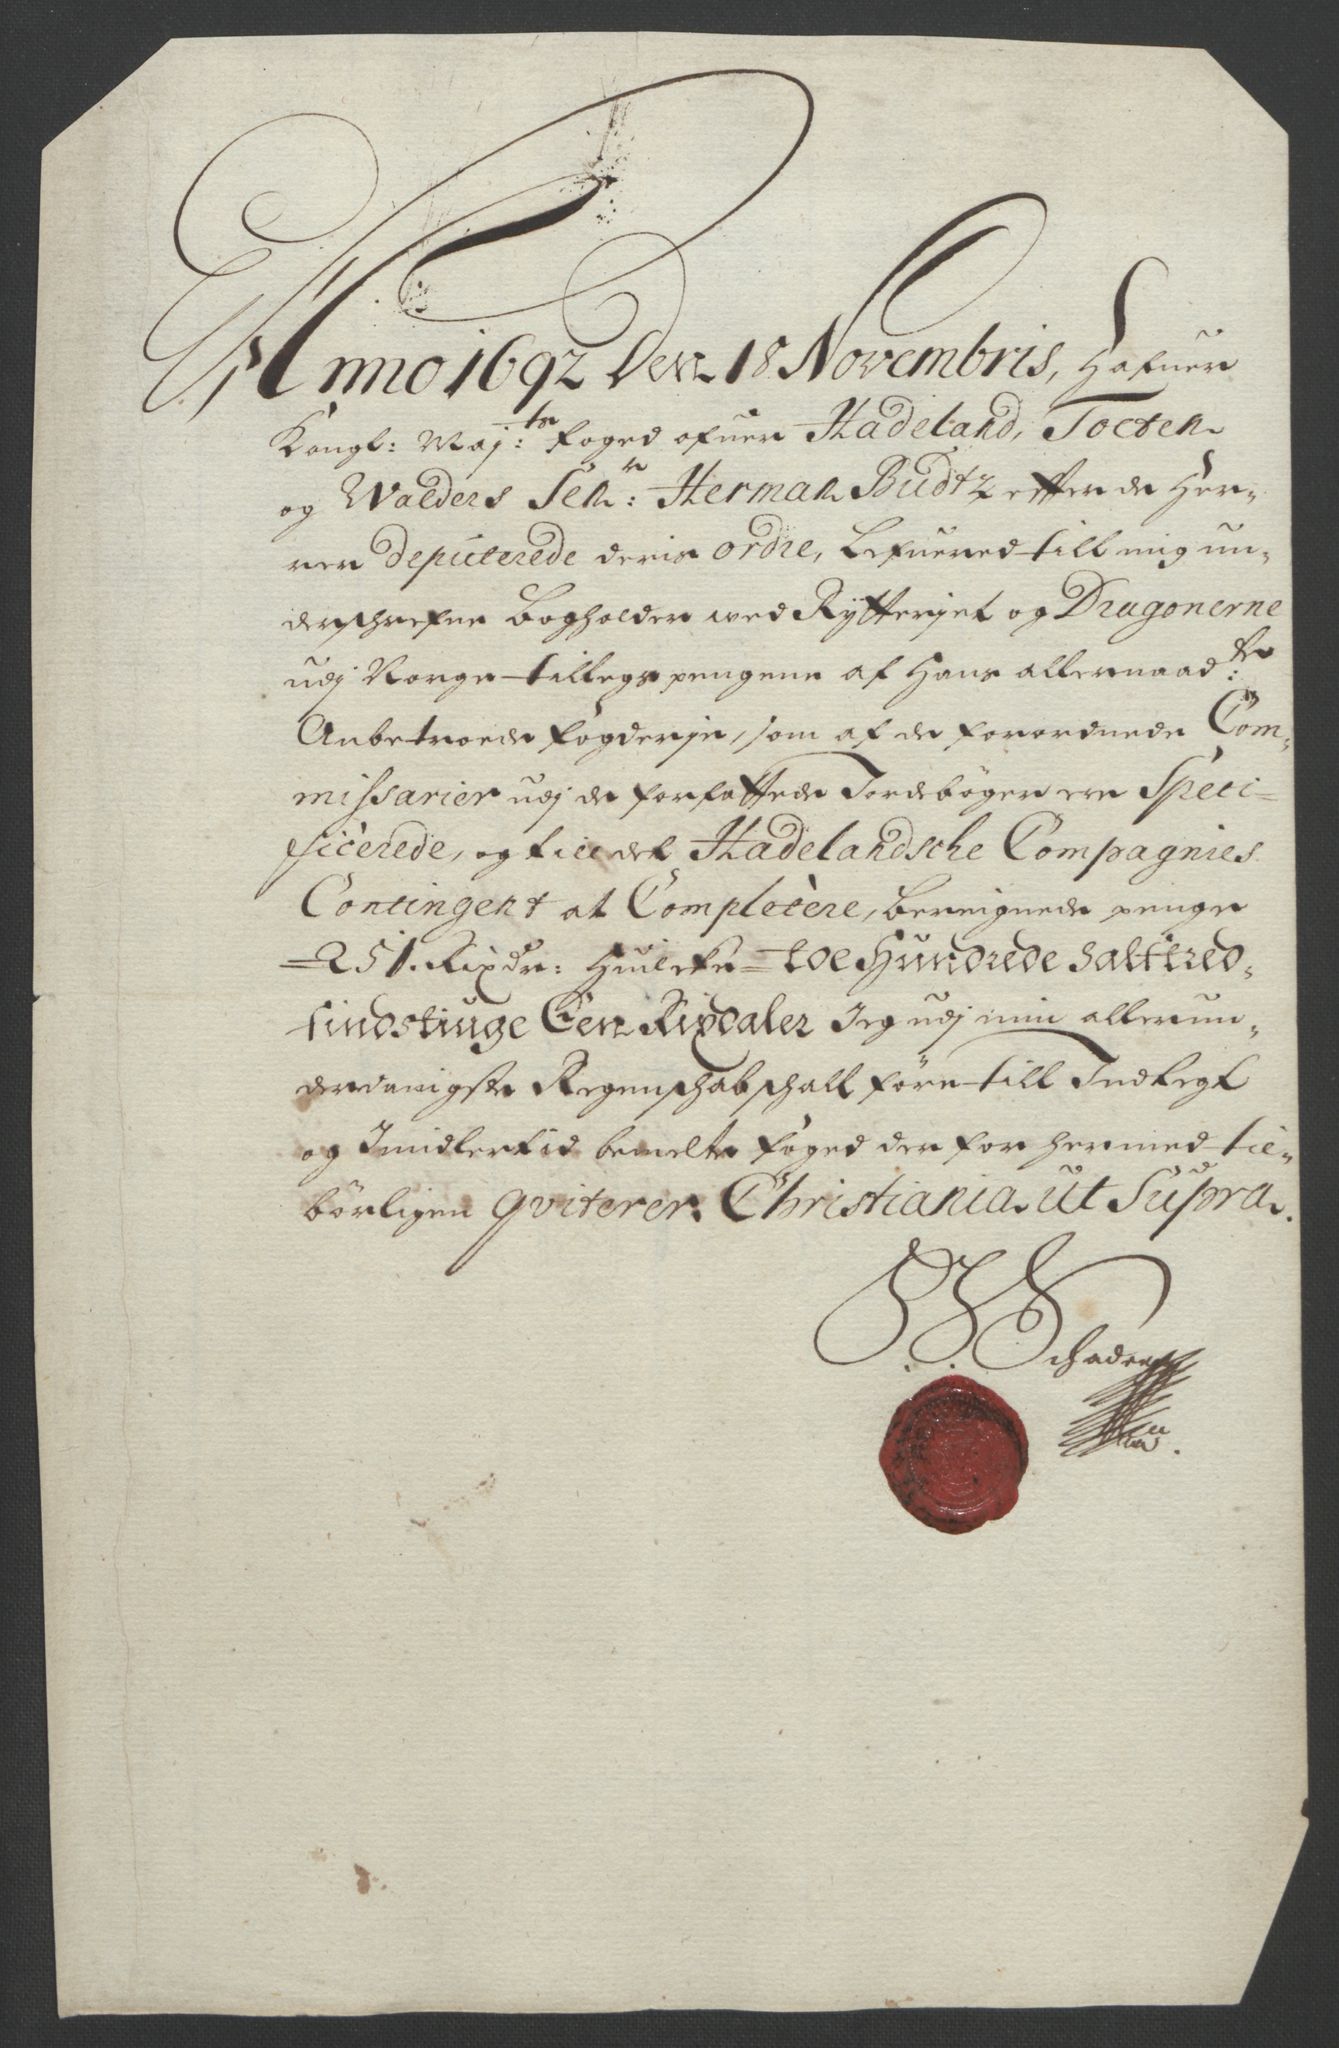 Anno 1692 Den 18 Novembris, Hafuer
Kongl: Maj:ts foged ofuer Hadeland, Tocten
og Walders Sen:r Herman Budtz effter de Her-
rer deputerede deris ordre, Lefuered till mig un-
derschrefne Bogholder wed Rytteriet og Dragonerne
udj Norge tillegs pengene af Hans allernaad:ste
Anbetroede fögderje, som af de forordnede Com-
missarier udj de forfattede Jordeböger ere Speci-
ficerede, og till det Hadelandsche Compagnies
Contingent at Completere, bereignede penge
=251. Rixdr: Huilcke= toe Hundrede Halftred-
sindstiuge Een Rixdaler Jeg udj min allerun-
derdanigste Regenschab schall före till Indtegt
og Imidlertid bemelte foged der for hermed til-
börligen qviterer. Christiania ut Supra.
Schader